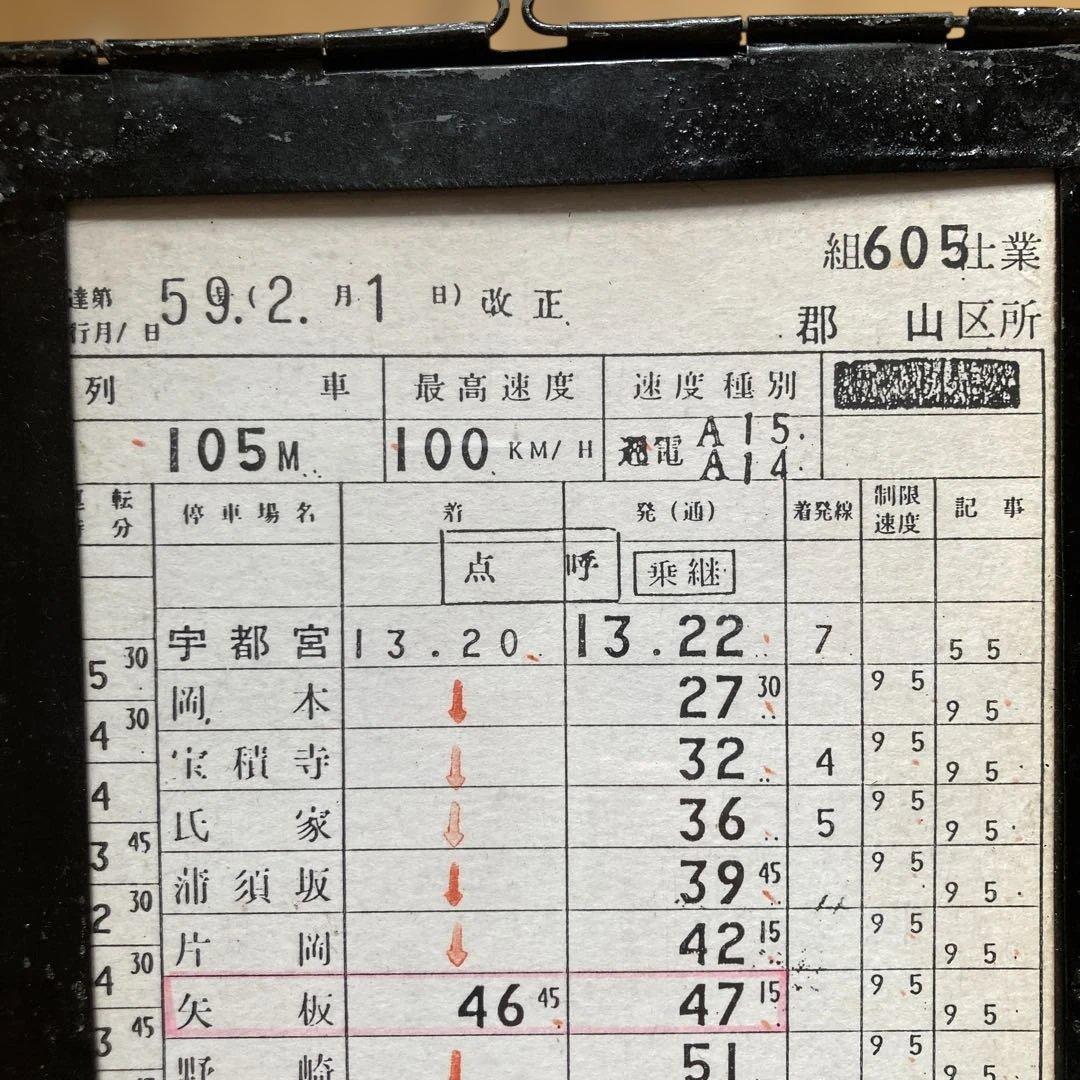 組605仕業
達第 59.(2.月1日)改正
行月/日
郡山区所
列車 最高速度 速度種別
105M 100 KM/H 通電 A15. A14
運転 停車場名 着 発(通) 着発線 制限速度 記事
時分
点呼 乗継
宇都宮 13.20 13.22 7 55
5 30
岡本 27 30 95 95
4 30
宝積寺 32 4 95 95
4
氏家 36 5 95 95
3 45
蒲須坂 39 45 95 95
2 30
片岡 42 15 95 95
4 30
矢板 46 45 47 15 95 95
3 45
野崎 51 95 95